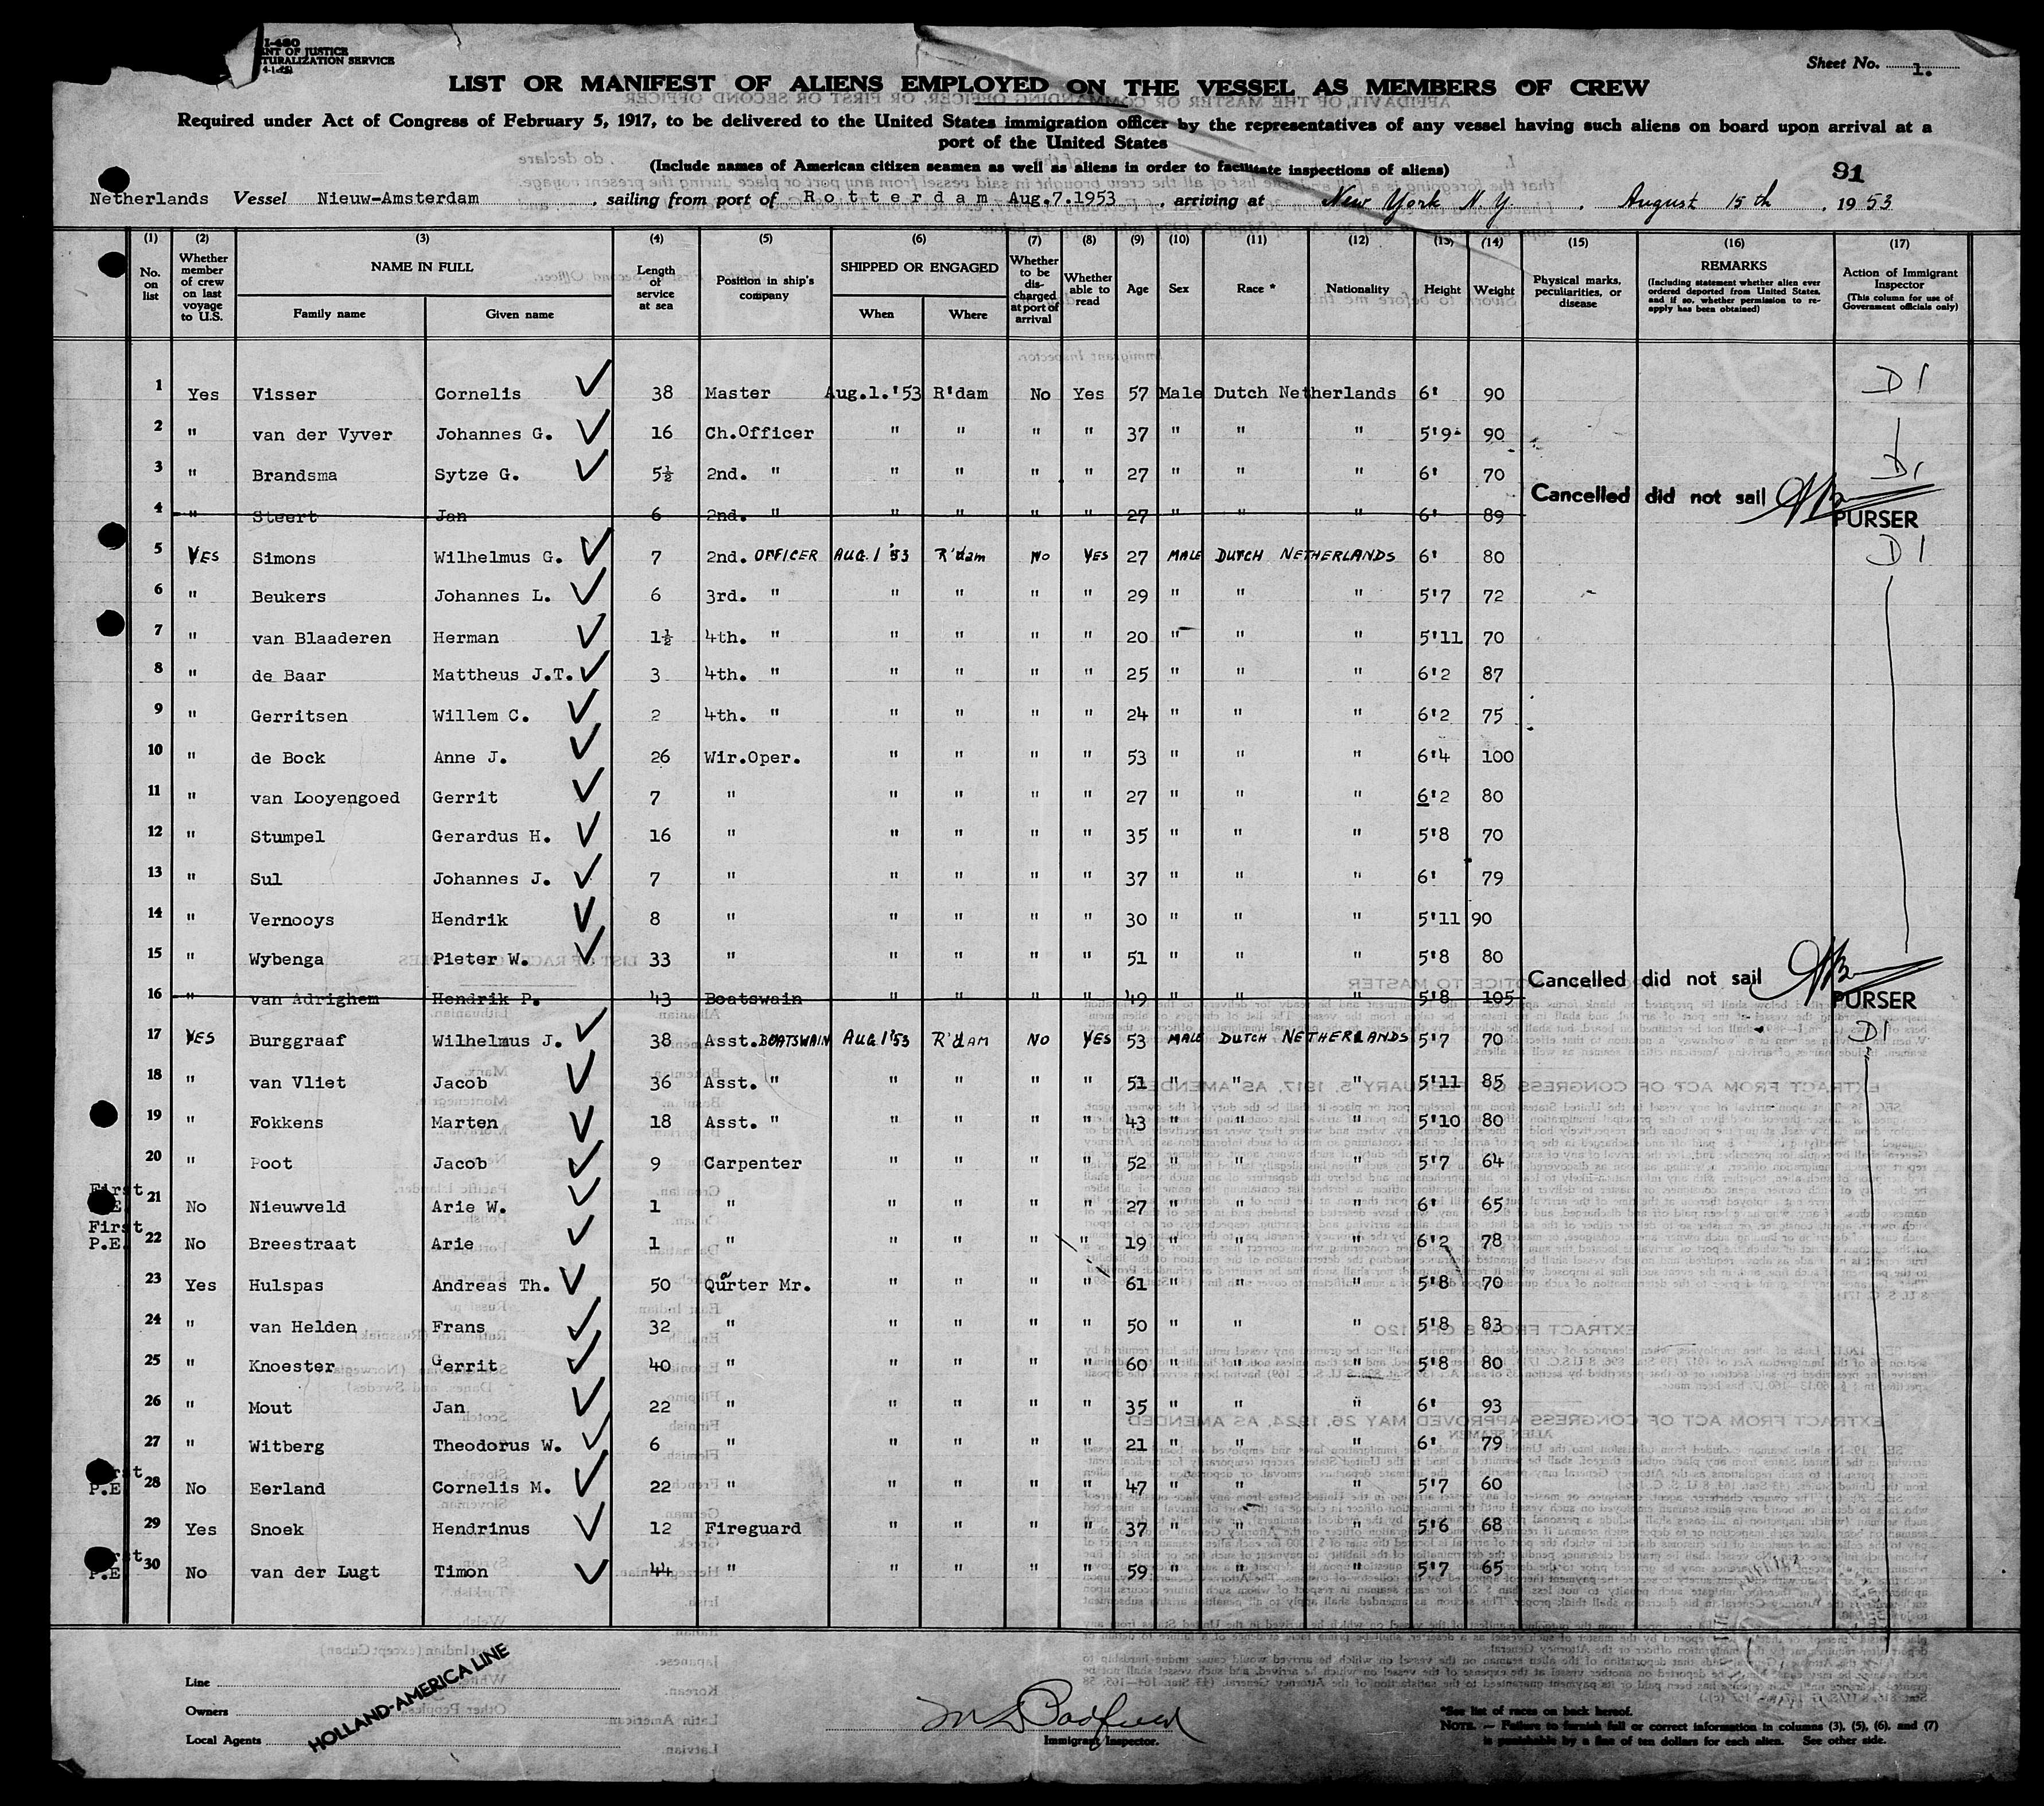 I-480
NT OF JUSTICE
TURALIZATION SERVICE
Sheet No. 1.
LIST OR MANIFEST OF ALIENS EMPLOYED ON THE VESSEL AS MEMBERS OF CREW
Required under Act of Congress of February 5, 1917, to be delivered to the United States immigration officer by the representatives of any vessel having such aliens on board upon arrival at a
port of the United States
(Include names of American citizen seamen as well as aliens in order to facilitate inspections of aliens)
91
Netherlands Vessel Nieuw-Amsterdam , sailing from port of Rotterdam Aug.7.1953 , arriving at New York N.Y. , August 15th , 1953
(1) (2) (3) (4) (5) (6) (7) (8) (9) (10) (11) (12) (13) (14) (15) (16) (17)
No. on list
Whether member of crew on last voyage to U.S.
NAME IN FULL
Family name Given name
Length of service at sea
Position in ship's company
SHIPPED OR ENGAGED
When Where
Whether to be discharged at port of arrival
Whether able to read
Age Sex Race * Nationality Height Weight
Physical marks, peculiarities, or disease
REMARKS
(Including statement whether alien ever ordered deported from United States, and if so, whether permission to reapply has been obtained)
Action of Immigrant Inspector
(This column for use of Government officials only)
1 Yes Visser Cornelis ✓ 38 Master Aug.1.'53 R'dam No Yes 57 Male Dutch Netherlands 6' 90 D1
2 " van der Vyver Johannes G. ✓ 16 Ch.Officer " " " " 37 " " " 5'9 90
3 " Brandsma Sytze G. ✓ 5½ 2nd. " " " " " 27 " " " 6' 70 D1
Cancelled did not sail
4 " Steert Jan 6 2nd. " " " " " 27 " " " 6' 89 PURSER
5 YES Simons Wilhelmus G. ✓ 7 2nd. OFFICER AUG 1 '53 R'dam No YES 27 MALE DUTCH NETHERLANDS 6' 80 D1
6 " Beukers Johannes L. ✓ 6 3rd. " " " " " 29 " " " 5'7 72
7 " van Blaaderen Herman ✓ 1½ 4th. " " " " " 20 " " " 5'11 70
8 " de Baar Mattheus J.T. ✓ 3 4th. " " " " " 25 " " " 6'2 87
9 " Gerritsen Willem C. ✓ 2 4th. " " " " " 24 " " " 6'2 75
10 " de Bock Anne J. ✓ 26 Wir.Oper. " " " " 53 " " " 6'4 100
11 " van Looyengoed Gerrit ✓ 7 " " " " " 27 " " " 6'2 80
12 " Stumpel Gerardus H. ✓ 16 " " " " " 35 " " " 5'8 70
13 " Sul Johannes J. ✓ 7 " " " " " 37 " " " 6' 79
14 " Vernooys Hendrik ✓ 8 " " " " " 30 " " " 5'11 90
15 " Wybenga Pieter W. ✓ 33 " " " " " 51 " " " 5'8 80
Cancelled did not sail
16 " van Adrighem Hendrik P. 43 Boatswain " " " " 49 " " " 5'8 105 PURSER
17 YES Burggraaf Wilhelmus J. ✓ 38 Asst.BOATSWAIN AUG 1'53 R'dAM NO YES 53 MALE DUTCH NETHERLANDS 5'7 70 D1
18 " van Vliet Jacob ✓ 36 Asst. " " " " " 51 " " " 5'11 85
19 " Fokkens Marten ✓ 18 Asst. " " " " " 43 " " " 5'10 80
20 " Poot Jacob ✓ 9 Carpenter " " " " 52 " " " 5'7 64
First P.E. 21 No Nieuwveld Arie W. ✓ 1 " " " " " 27 " " " 6' 65
First P.E. 22 No Breestraat Arie ✓ 1 " " " " " 19 " " " 6'2 78
23 Yes Hulspas Andreas Th. ✓ 50 Quarter Mr. " " " " 61 " " " 5'8 70
24 " van Helden Frans ✓ 32 " " " " " 50 " " " 5'8 83
25 " Knoester Gerrit ✓ 40 " " " " " 60 " " " 5'8 80
26 " Mout Jan ✓ 22 " " " " " 35 " " " 6' 93
27 " Witberg Theodorus W. ✓ 6 " " " " " 21 " " " 6' 79
First P.E. 28 No Eerland Cornelis M. ✓ 22 " " " " " 47 " " " 5'7 60
29 Yes Snoek Hendrinus ✓ 12 Fireguard " " " " 37 " " " 5'6 68
First P.E. 30 No van der Lugt Timon ✓ 44 " " " " " 59 " " " 5'7 65
Line
Owners
Local Agents
HOLLAND-AMERICA LINE
Immigrant Inspector.
*See list of races on back hereof.
NOTE. — Failure to furnish full or correct information in columns (3), (5), (6), and (7)
is punishable by a fine of ten dollars for each alien. See other side.